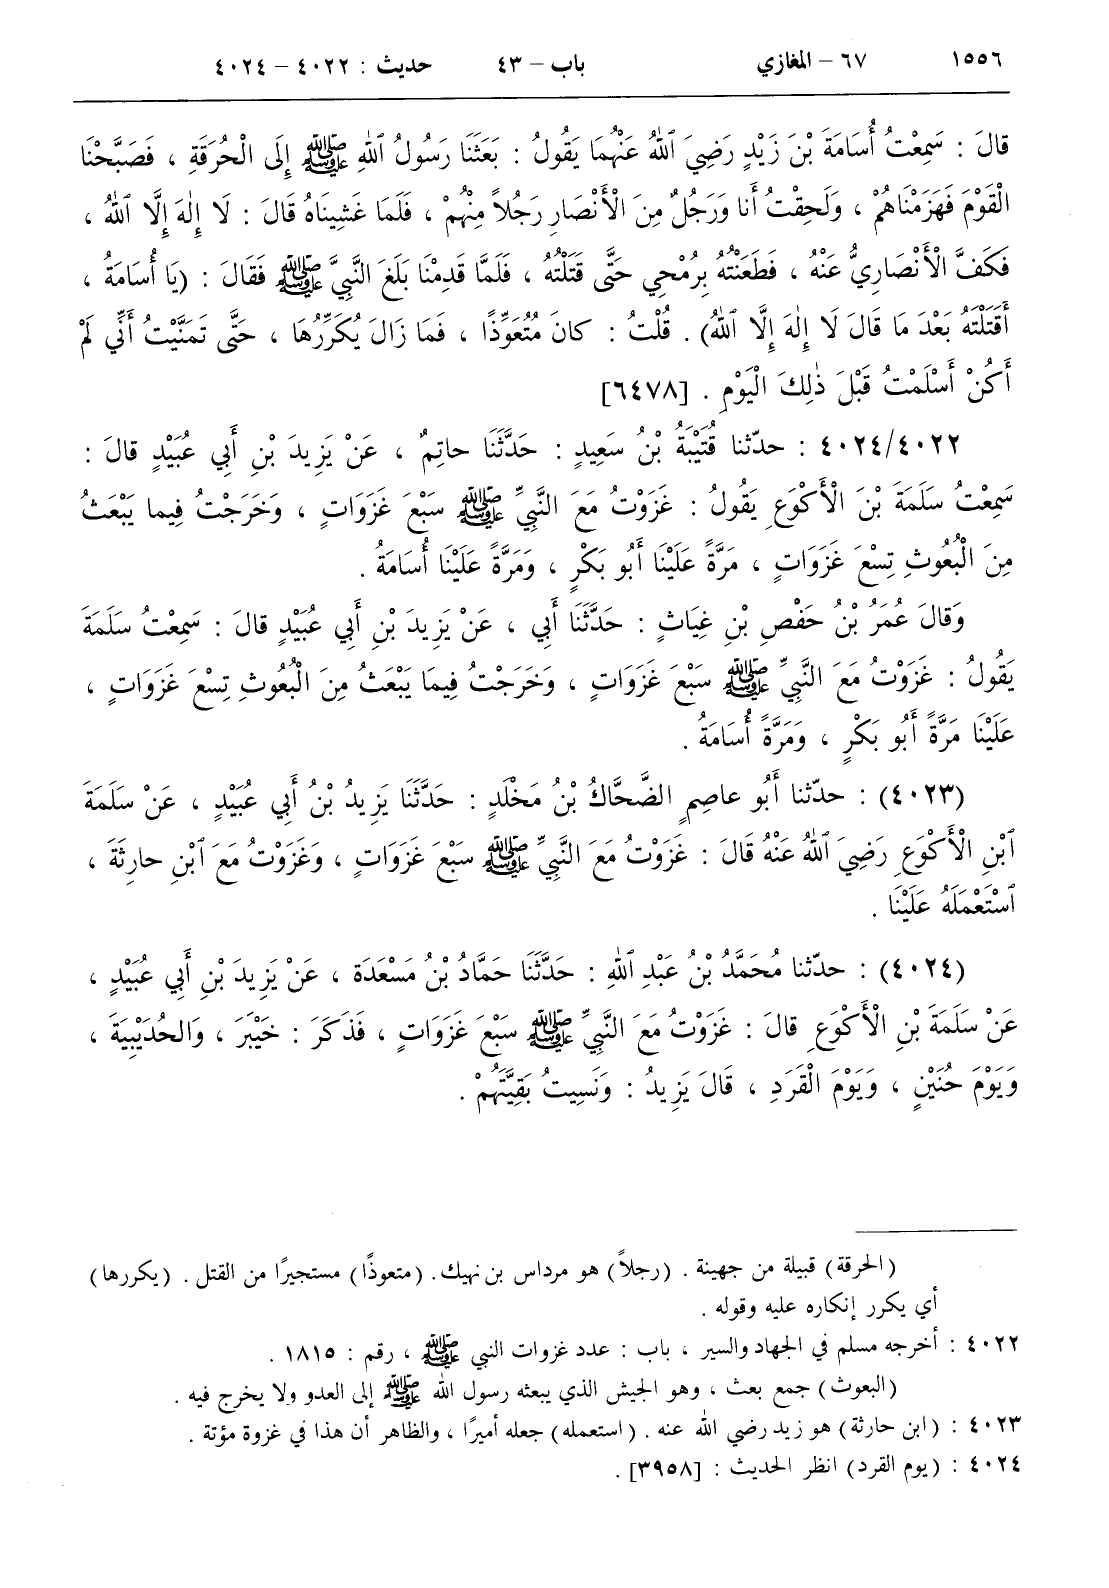 ١٥٥٦ ٦٧ – المغازي باب – ٤٣ حديث : ٤٠٢٢ – ٤٠٢٤
قالَ : سَمِعْتُ أُسَامَةَ بْنَ زَيْدٍ رَضِيَ ٱللهُ عَنْهُمَا يَقُولُ : بَعَثَنَا رَسُولُ ٱللهِ ﷺ إِلَى الْحُرَقَةِ ، فَصَبَّحْنَا
الْقَوْمَ فَهَزَمْنَاهُمْ ، وَلَحِقْتُ أَنا وَرَجُلٌ مِنَ الْأَنْصَارِ رَجُلاً مِنْهُمْ ، فَلَمَا غَشِينَاهُ قَالَ : لَا إِلٰهَ إِلَّا ٱللهُ ،
فَكَفَّ الْأَنْصَارِيُّ عَنْهُ ، فَطَعَنْتُهُ بِرُمْحِي حَتَّى قَتَلْتُهُ ، فَلَمَّا قَدِمْنَا بَلَغَ النَّبِيَّ ﷺ فَقَالَ : (يَا أُسَامَةُ ،
أَقَتَلْتَهُ بَعْدَ مَا قَالَ لَا إِلٰهَ إِلَّا ٱللهُ) . قُلْتُ : كانَ مُتَعَوِّذًا ، فَمَا زَالَ يُكَرِّرُهَا ، حَتَّى تَمَنَّيْتُ أَنِّي لَمْ
أَكُنْ أَسْلَمْتُ قَبْلَ ذٰلِكَ الْيَوْمِ . [٦٤٧٨]
٤٠٢٤/٤٠٢٢ : حدّثنا قُتَيْبَةُ بْنُ سَعِيدٍ : حَدَّثَنَا حاتِمٌ ، عَنْ يَزِيدَ بْنِ أَبِي عُبَيْدٍ قالَ :
سَمِعْتُ سَلَمَةَ بْنَ الْأَكْوَعِ يَقُولُ : غَزَوْتُ مَعَ النَّبِيِّ ﷺ سَبْعَ غَزَوَاتٍ ، وَخَرَجْتُ فِيما يَبْعَثُ
مِنَ الْبُعُوثِ تِسْعَ غَزَوَاتٍ ، مَرَّةً عَلَيْنَا أَبُو بَكْرٍ ، وَمَرَّةً عَلَيْنَا أُسَامَةُ .
وَقالَ عُمَرُ بْنُ حَفْصِ بْنِ غِيَاثٍ : حَدَّثَنَا أَبِي ، عَنْ يَزِيدَ بْنِ أَبِي عُبَيْدٍ قالَ : سَمِعْتُ سَلَمَةَ
يَقُولُ : غَزَوْتُ مَعَ النَّبِيِّ ﷺ سَبْعَ غَزَوَاتٍ ، وَخَرَجْتُ فِيمَا يَبْعَثُ مِنَ الْبُعُوثِ تِسْعَ غَزَوَاتٍ ،
عَلَيْنَا مَرَّةً أَبُو بَكْرٍ ، وَمَرَّةً أُسَامَةُ .
(٤٠٢٣) : حدّثنا أَبُو عاصِمٍ الضَّحَّاكُ بْنُ مَخْلَدٍ : حَدَّثَنَا يَزِيدُ بْنُ أَبِي عُبَيْدٍ ، عَنْ سَلَمَةَ
ٱبْنِ الْأَكْوَعِ رَضِيَ ٱللهُ عَنْهُ قالَ : غَزَوْتُ مَعَ النَّبِيِّ ﷺ سَبْعَ غَزَوَاتٍ ، وَغَزَوْتُ مَعَ ٱبْنِ حارِثَةَ ،
ٱسْتَعْمَلَهُ عَلَيْنَا .
(٤٠٢٤) : حدّثنا مُحَمَّدُ بْنُ عَبْدِ ٱللهِ : حَدَّثَنَا حَمَّادُ بْنُ مَسْعَدَةَ ، عَنْ يَزِيدَ بْنِ أَبِي عُبَيْدٍ ،
عَنْ سَلَمَةَ بْنِ الْأَكْوَعِ قالَ : غَزَوْتُ مَعَ النَّبِيِّ ﷺ سَبْعَ غَزَوَاتٍ ، فَذَكَرَ : خَيْبَرَ ، وَالحُدَيْبِيَةَ ،
وَيَوْمَ حُنَيْنٍ ، وَيَوْمَ الْقَرَدِ ، قَالَ يَزِيدُ : وَنَسِيتُ بَقِيَّتَهُمْ .
(الحرقة) قبيلة من جهينة . (رجلاً) هو مرداس بن نهيك . (متعوذًا) مستجيرًا من القتل . (يكررها)
أي يكرر إنكاره عليه وقوله .
٤٠٢٢ : أخرجه مسلم في الجهاد والسير ، باب : عدد غزوات النبي ﷺ ، رقم : ١٨١٥ .
(البعوث) جمع بعث ، وهو الجيش الذي يبعثه رسول الله ﷺ إلى العدو ولا يخرج فيه .
٤٠٢٣ : (ابن حارثة) هو زيد رضي الله عنه . (استعمله) جعله أميرًا ، والظاهر أن هذا في غزوة مؤتة .
٤٠٢٤ : (يوم القرد) انظر الحديث : [٣٩٥٨] .